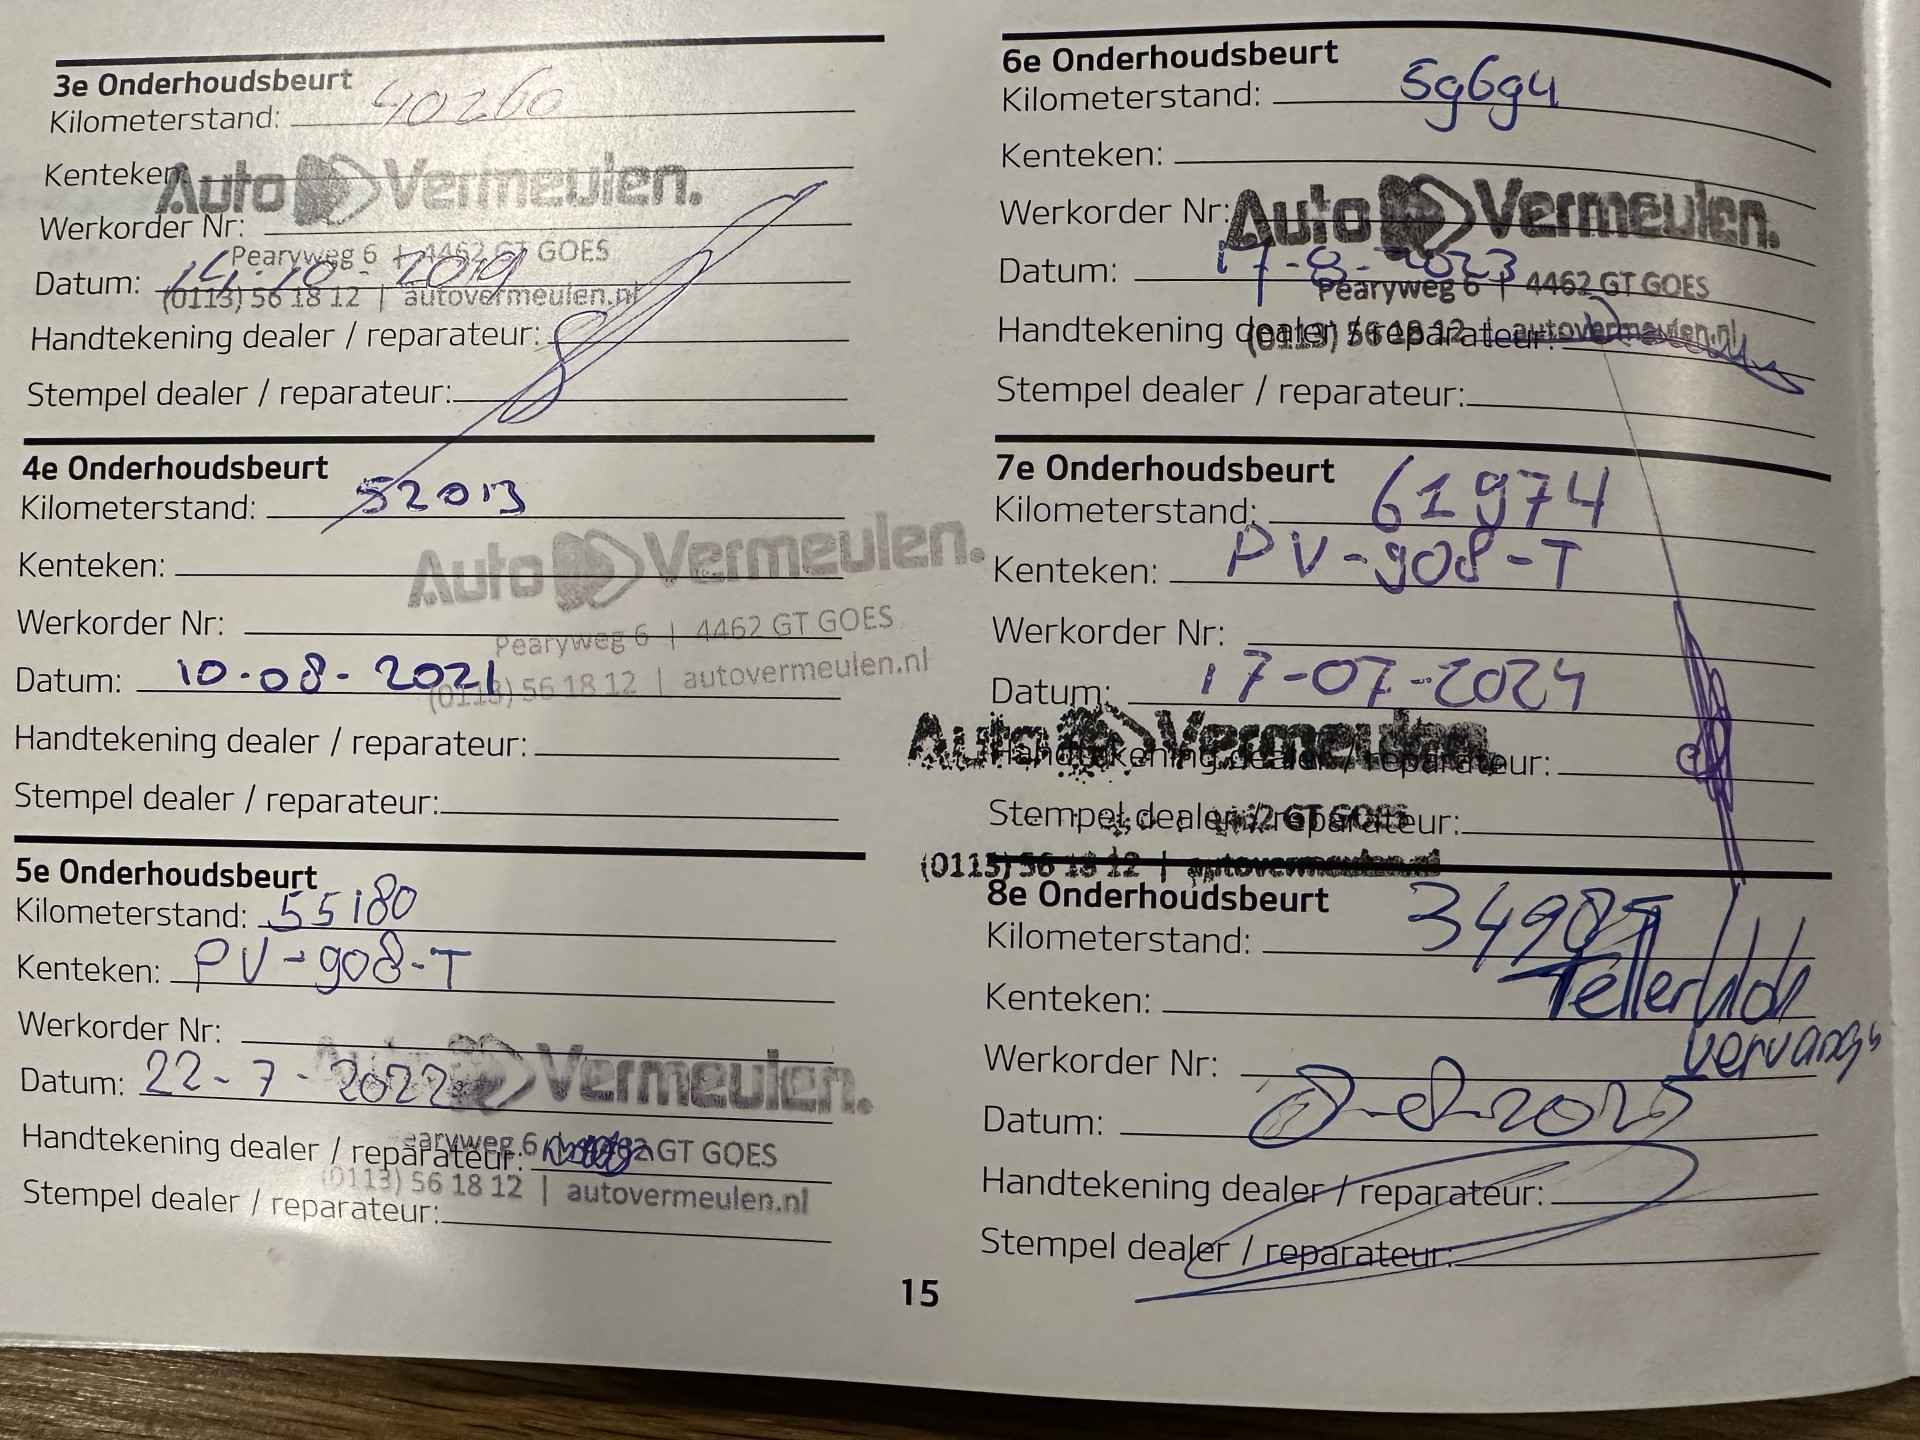 3e Onderhoudsbeurt
Kilometerstand: 40260
Kenteken:
Auto Vermeulen.
Werkorder Nr:
Pearyweg 6 | 4462 GT GOES
Datum: 14-10-2019
(0113) 56 18 12 | autovermeulen.nl
Handtekening dealer / reparateur:
Stempel dealer / reparateur:
4e Onderhoudsbeurt
Kilometerstand: 52013
Auto Vermeulen.
Kenteken:
Werkorder Nr:
Pearyweg 6 | 4462 GT GOES
Datum: 10-08-2021
(0113) 56 18 12 | autovermeulen.nl
Handtekening dealer / reparateur:
Stempel dealer / reparateur:
5e Onderhoudsbeurt
Kilometerstand: 55180
Kenteken: PV-908-T
Werkorder Nr:
Auto Vermeulen.
Datum: 22-7-2022
Handtekening dealer / reparateur:
earyweg 6 | 4462 GT GOES
(0113) 56 18 12 | autovermeulen.nl
Stempel dealer / reparateur:
6e Onderhoudsbeurt
Kilometerstand: 59694
Kenteken:
Werkorder Nr:
Auto Vermeulen.
Datum: 17-8-2023
Pearyweg 6 | 4462 GT GOES
Handtekening dealer / reparateur:
(0113) 56 18 12 | autovermeulen.nl
Stempel dealer / reparateur:
7e Onderhoudsbeurt
Kilometerstand: 61974
Kenteken: PV-908-T
Werkorder Nr:
Datum: 17-07-2024
Auto Vermeulen.
Handtekening dealer / reparateur:
Stempel dealer / reparateur:
GT GOES
(0113) 56 18 12 | autovermeulen.nl
8e Onderhoudsbeurt
Kilometerstand: 34985
Tellerklok
Kenteken:
vervangen
Werkorder Nr:
Datum: 8-8-2025
Handtekening dealer / reparateur:
Stempel dealer / reparateur:
15